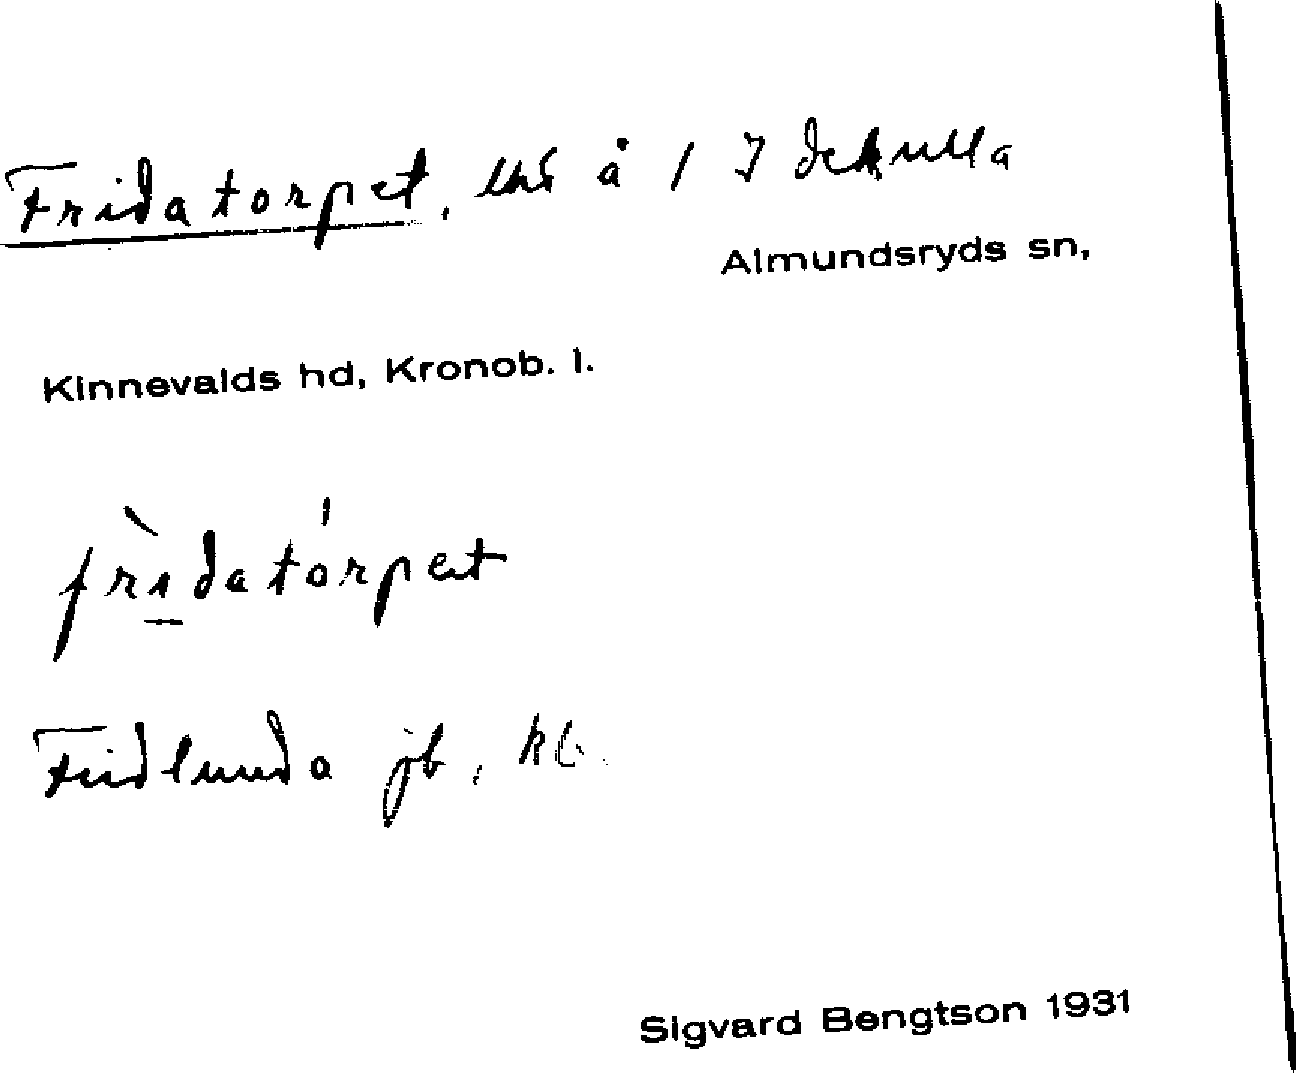 Fridatorpet, lht å 1 Idekulla
Almundsryds sn,
Kinnevalds hd, Kronob. l.
frìdatórpeɩt
Fridlunda jb, kb.
Sigvard Bengtson 1931